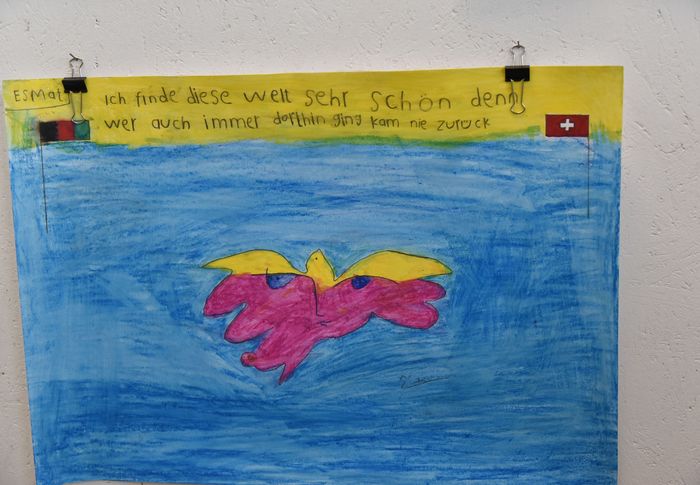 ESMat
Ich finde diese welt sehr schön denn
wer auch immer dorthin ging kam nie zurück